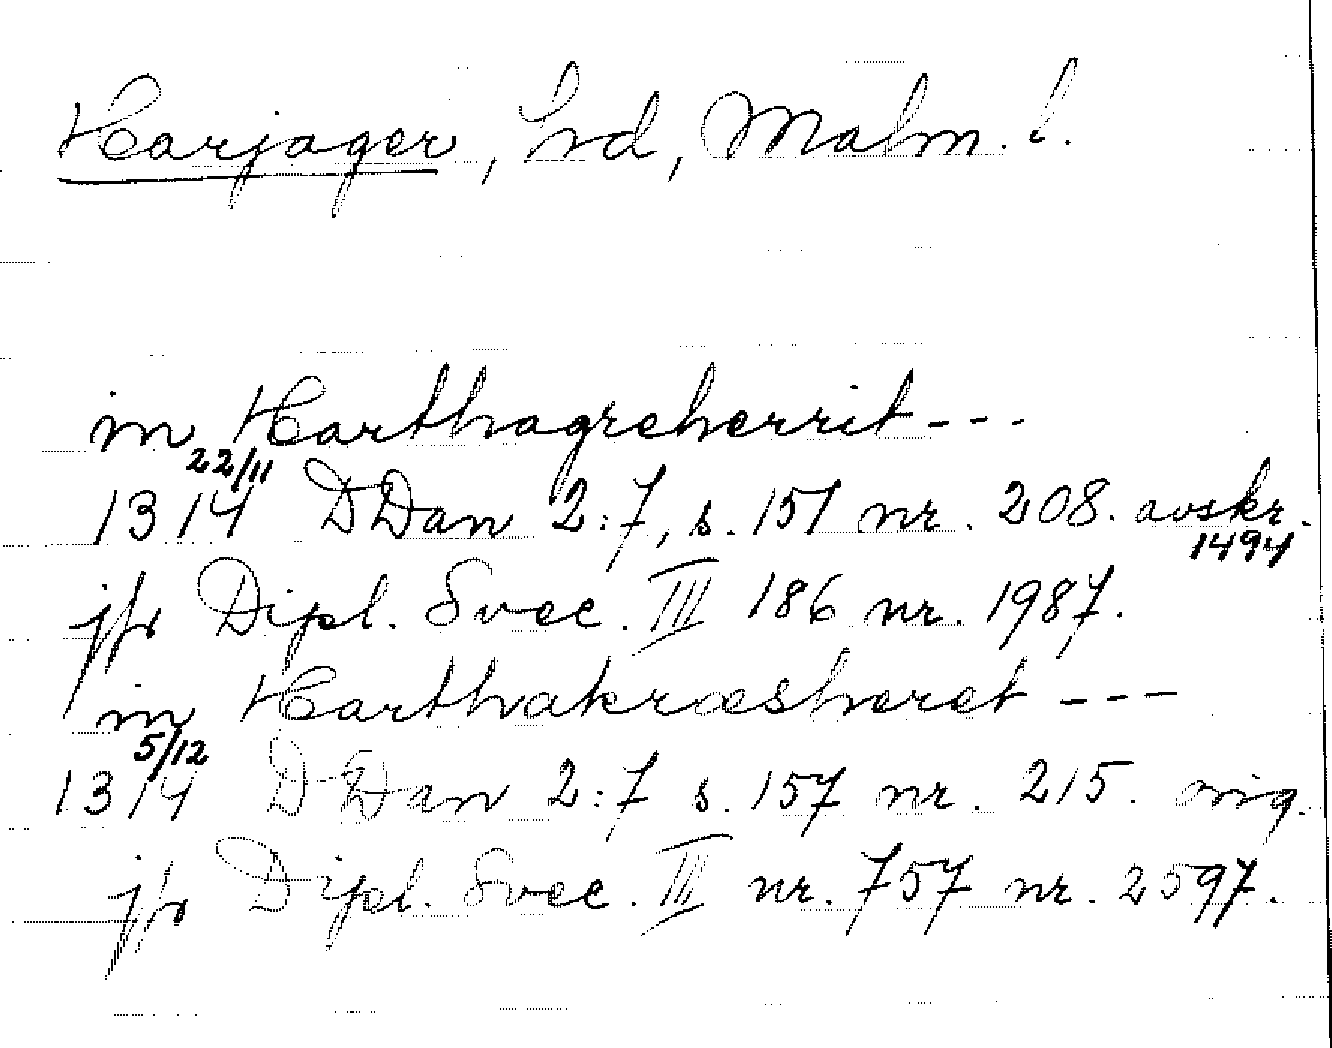 Harjager, hd, Malm. l.
in Harthagreherrit - - -
22/11
1314 DDan 2:7, s. 151 nr. 208. avskr.
1494
jfr Dipl. Svec. III 186 nr. 1987.
in Harthakræsheret - - -
5/12
1314 DDan 2:7 s. 157 nr. 215. orig.
jfr Dipl. Svec. III nr. 757 nr. 2597.